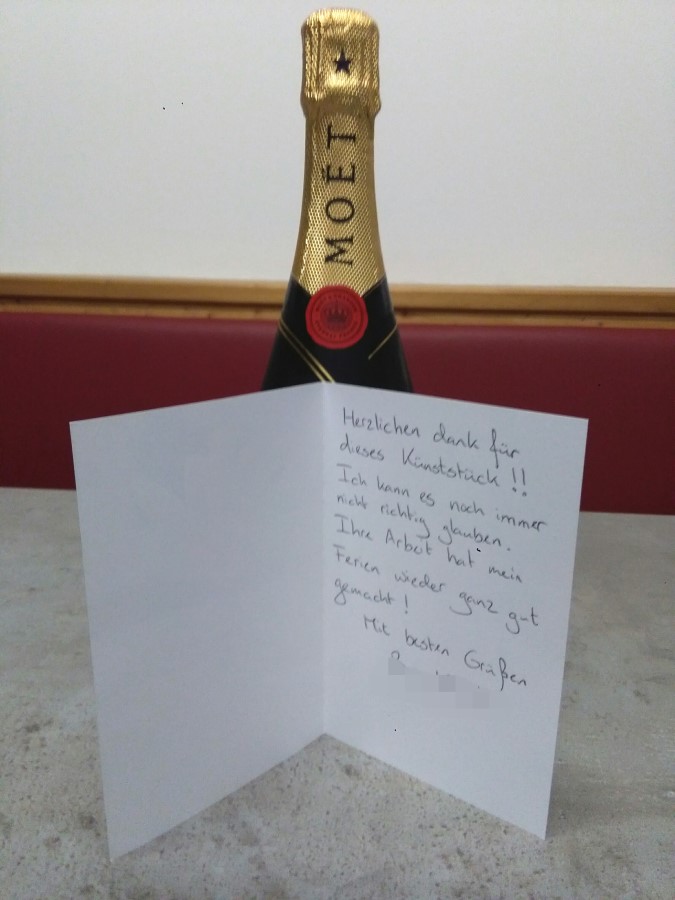 MOËT
Herzlichen dank für
dieses Kunststück !!
Ich kann es noch immer
nicht richtig glauben.
Ihre Arbeit hat mein
Ferien wieder ganz gut
gemacht !
Mit besten Grüßen